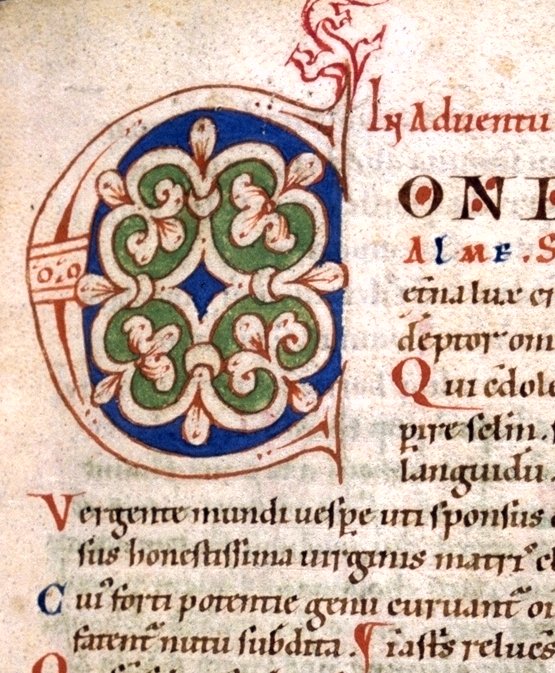 In Adventu
C ONDI
Alme. S
et̄na lux c
deptor om
Qui c̄dol
pire selin.
languidū
Vergente mundi uesp̄e uti sponsus
sus honestissima uirginis matri᷒ cl
Cui᷒ forti potentie genu curuant᷑ o
fatent᷑ nutu subdita. ¶ iasts relues